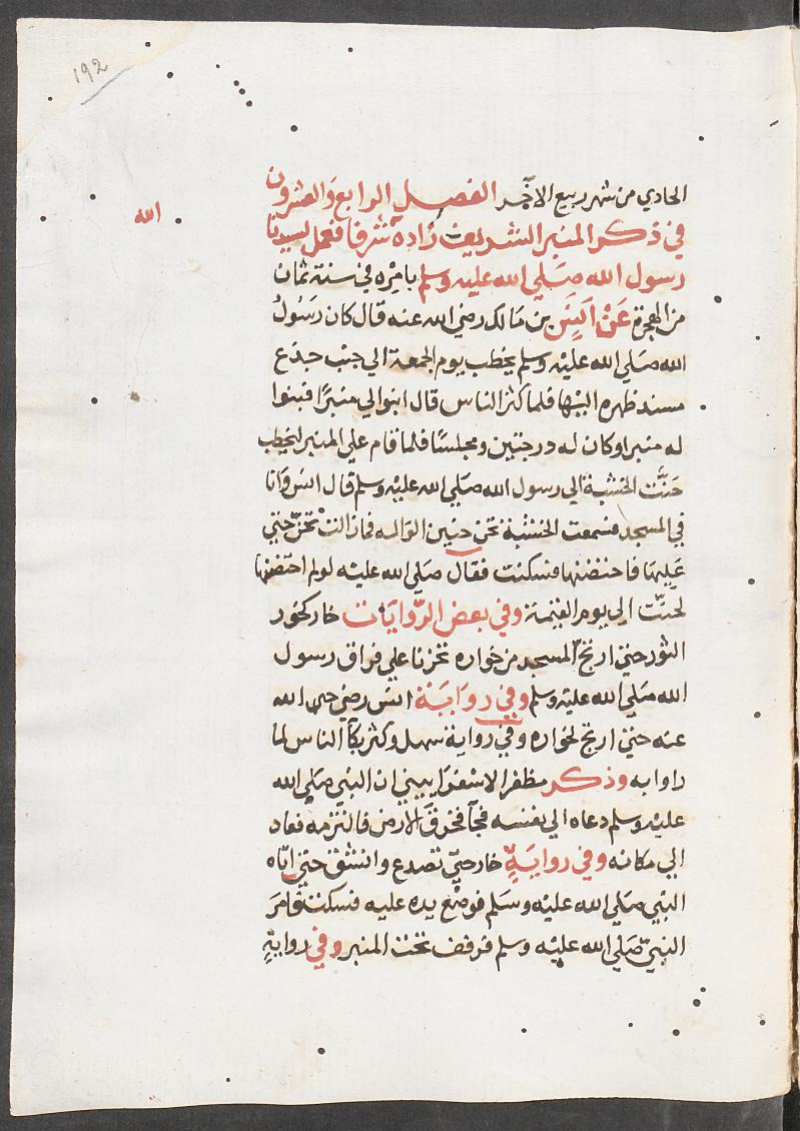 192
الحادي من شهر ربيع الاخر الفصل الرابع والعشرون
في ذكر المنبر الشريف زاده شرفا فعمل لسيدنا
الله
رسول الله صلي الله عليه وسلم بامره في سنة ثمان
من الهجرة عن انس بن مالك رضي الله عنه قال كان رسول
الله صلي الله عليه وسلم يخطب يوم الجمعة الي جنب جذع
مسند ظهره اليها فلما كثر الناس قال ابنوا لي منبرا فبنوا
له منبرا وكان له درجتين ومجلسا فلما قام علي المنبر ليخطب
حنت الخشبة الي رسول الله صلي الله عليه وسلم قال انس وانا
في المسجد فسمعت الخشبة تحن حنين الواله فما زالت تحن حتي
عليها فاحتضنها فسكنت فقال صلي الله عليه لو لم احتضنها
لحنت الي يوم القيمة وفي بعض الروايات خار كخور
الثور حتي ارتج المسجد من خواره تحزنا علي فراق رسول
الله صلي الله عليه وسلم وفي رواية انس رضي الله
عنه حتي ارتج لخواره وفي رواية سهل وكثر بكآ الناس لما
راوا به وذكر مظفر الاسفرابيني ان النبي صلي الله
عليه وسلم دعاه الي نفسه فجآ فخرق الارض فالتزمه فعاد
الي مكانه وفي رواية خار حتي تصدع وانشق حتي اتاه
النبي صلي الله عليه وسلم فوضع يده عليه فسكنت وامر
النبي صلي الله عليه وسلم فرفف تحت المنبر وفي رواية